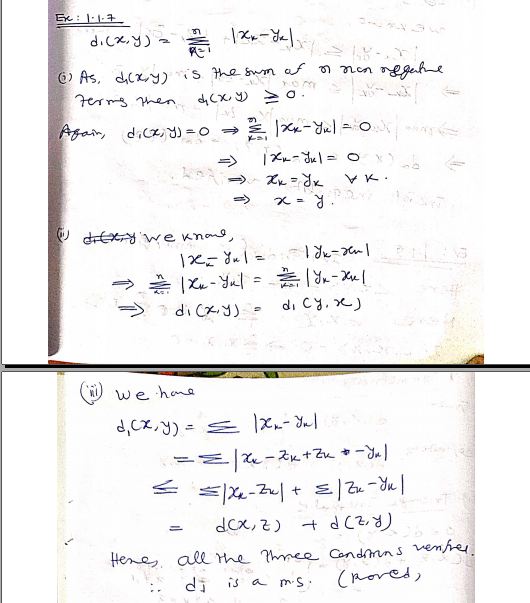 Ex: 1.1.7
d₁(x,y) = n Σ k=1 |xₖ-yₖ|
(i) As, d₁(x,y) is the sum of n non negative
terms then d₁(x,y) ≥ 0.
Again, d₁(x,y) = 0 ⇒ n Σ k=1 |xₖ-yₖ| = 0
⇒ |xₖ-yₖ| = 0
⇒ xₖ = yₖ ∀ k.
⇒ x = y.
(ii) d₁(x,y we know,
|xₖ-yₖ| = |yₖ-xₖ|
⇒ n Σ k=1 |xₖ-yₖ| = n Σ k=1 |yₖ-xₖ|
⇒ d₁(x,y) = d₁(y,x)
(iii) we have
d₁(x,y) = Σ |xₖ-yₖ|
= Σ |xₖ-zₖ+zₖ-yₖ|
≤ Σ|xₖ-zₖ| + Σ|zₖ-yₖ|
= d(x,z) + d(z,y)
Hence, all the three conditions verified.
∴ d₁ is a m.s. (proved)